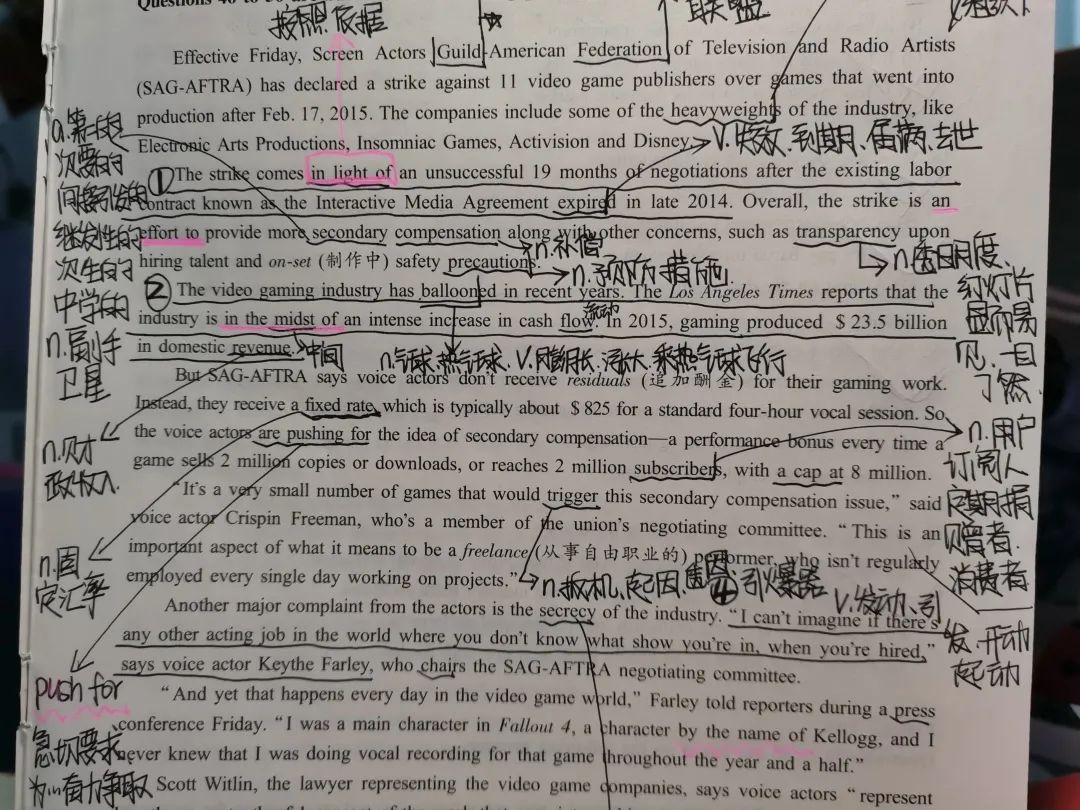 按照、依据
联盟
Effective Friday, Screen Actors Guild-American Federation of Television and Radio Artists
(SAG-AFTRA) has declared a strike against 11 video game publishers over games that went into
production after Feb. 17, 2015. The companies include some of the heavyweights of the industry, like
Electronic Arts Productions, Insomniac Games, Activision and Disney.
V.失效、到期、届满、去世
①The strike comes in light of an unsuccessful 19 months of negotiations after the existing labor
contract known as the Interactive Media Agreement expired in late 2014. Overall, the strike is an
effort to provide more secondary compensation along with other concerns, such as transparency upon
n.补偿
hiring talent and on-set (制作中) safety precautions.
n.预防措施
②The video gaming industry has ballooned in recent years. The Los Angeles Times reports that the
流动
industry is in the midst of an intense increase in cash flow. In 2015, gaming produced $23.5 billion
in domestic revenue.
中间
n.气球、热气球、V.膨胀、乘热气球飞行
But SAG-AFTRA says voice actors don't receive residuals (追加酬金) for their gaming work.
Instead, they receive a fixed rate, which is typically about $825 for a standard four-hour vocal session. So
the voice actors are pushing for the idea of secondary compensation—a performance bonus every time a
game sells 2 million copies or downloads, or reaches 2 million subscribers, with a cap at 8 million.
"It's a very small number of games that would trigger this secondary compensation issue," said
voice actor Crispin Freeman, who's a member of the union's negotiating committee. "This is an
important aspect of what it means to be a freelance (从事自由职业的) performer, who isn't regularly
employed every single day working on projects."
n.扳机、起因、引爆器
V.发动、引
发、开动
起动
Another major complaint from the actors is the secrecy of the industry. "I can't imagine if there's
any other acting job in the world where you don't know what show you're in, when you're hired,"
says voice actor Keythe Farley, who chairs the SAG-AFTRA negotiating committee.
"And yet that happens every day in the video game world," Farley told reporters during a press
conference Friday. "I was a main character in Fallout 4, a character by the name of Kellogg, and I
never knew that I was doing vocal recording for that game throughout the year and a half."
Scott Witlin, the lawyer representing the video game companies, says voice actors "represent
a.第二的
次要的
间接引发的
继发性的
次生的
中学的
n.副手
卫星
n.财
政收入
n.固
定汇率
push for
急切要求、
为…奋力争取
n.透明度、
幻灯片
显而易
见、一目
了然
n.用户
订阅人
定期捐
赠者
消费者